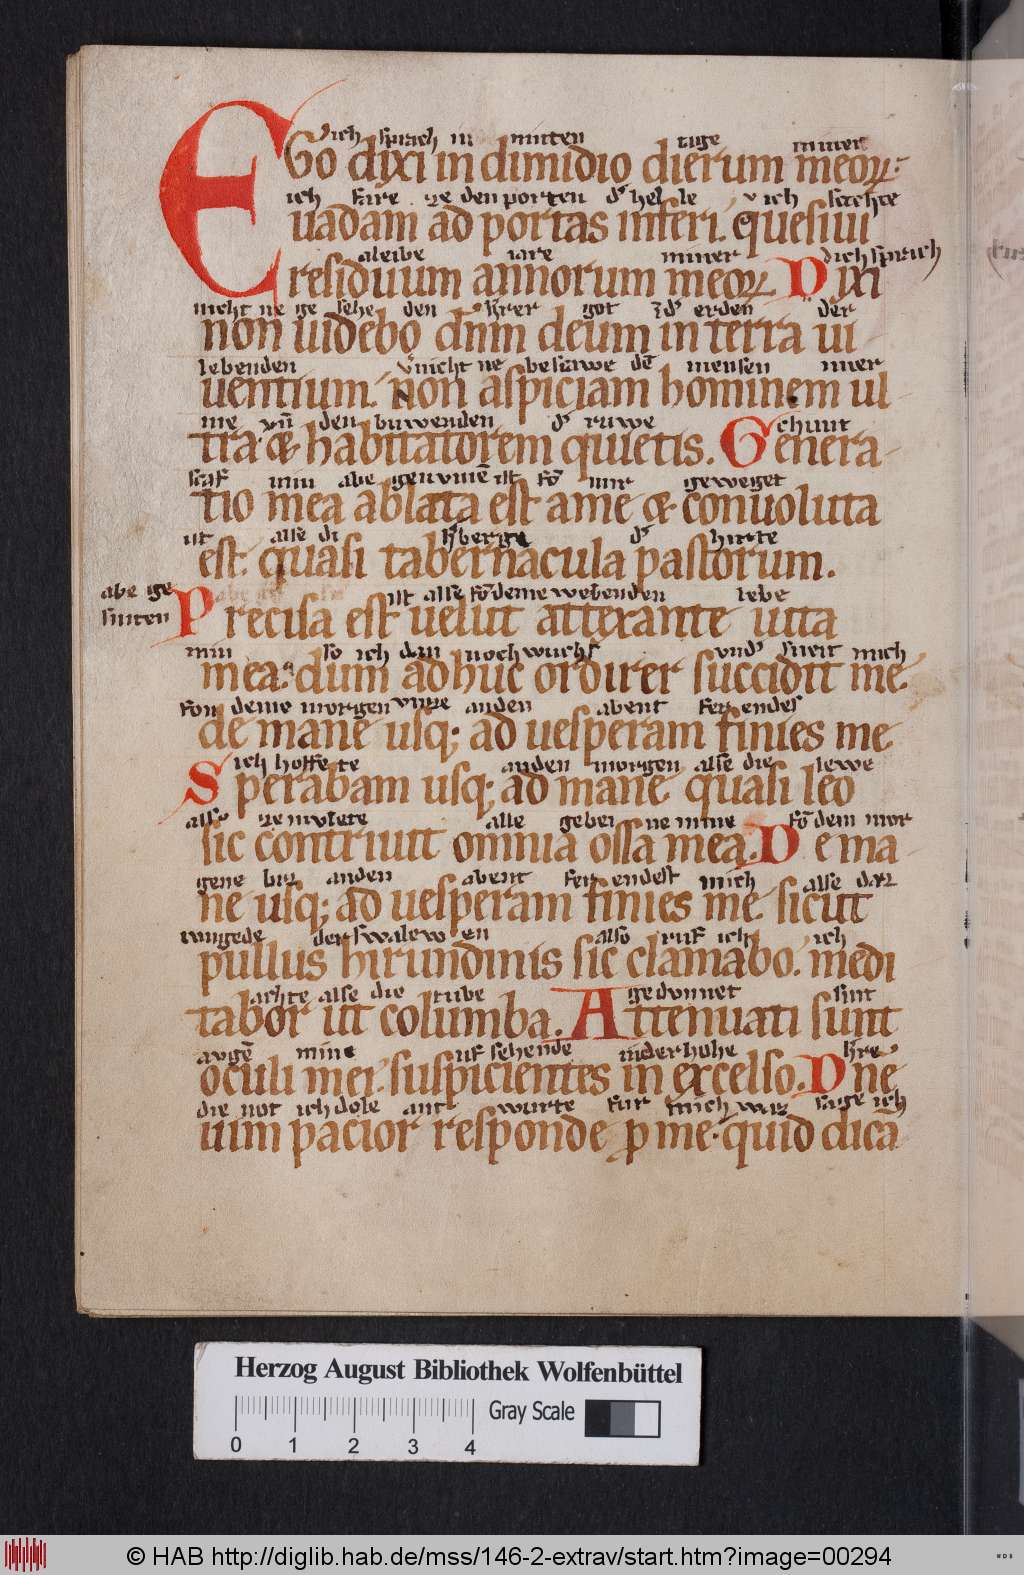 ich sprach in mitten tage miner
EGO dixi in dimidio dierum meoꝝ:
ich fare ze den porten d̕ helle v ich suchte
uadam ad portas inferi. quesiui
aleibe iare miner dich sprach
residuum annorum meoꝝ Dixi
nicht ne ge sehe den h̕rer got erden der
non uidebo dn̄m deum in terra ui
lebenden nicht ne besuwe dē mensen mer
uentium. non aspiciam hominem ul
me vn̄ den buwenden d̕ ruwe chunt
tra. & habitatorem quietis. Genera-
scaf min abe genumē ist fō mir geweget
tio mea ablata est a me & conuoluta
ist alse di h̕berge d̕ hirte
est. quasi tabernacula pastorum.
abe ge ist alse fō deme webenden lebe
sniten Precisa est uelut a texante uita
min so ich dan noch wuchs vnd̕ sneit mich
mea. dum adhuc ordirer succidit me.
fon deme morgen vnze anden abent fer endes
de mane usq; ad uesperam finies me
ich hoffete anden morgen alse die lewe
Sperabam usq; ad mane quasi leo
also ze mulete alle gebei ne mine fō dem mor
sic contriuit omnia ossa mea. De ma
gene biz anden abent fer endest mich alse daz
ne usq; ad uesperam finies me. sicut
iungede der swalewen also ruf ich ich
pullus hirundinis sic clamabo. medi
achte alse die tube gedunnet sint
tabor ut columba. Attenuati sunt
augē mine uf sehende inder hohe h̕re
oculi mei. suspicientes in excelso. Dn̄e
die not ich dole ant wurte fur mich waz sage ich
uim pacior responde ꝓ me. quid dicā
Herzog August Bibliothek Wolfenbüttel
Gray Scale
0 1 2 3 4
© HAB http://diglib.hab.de/mss/146-2-extrav/start.htm?image=00294